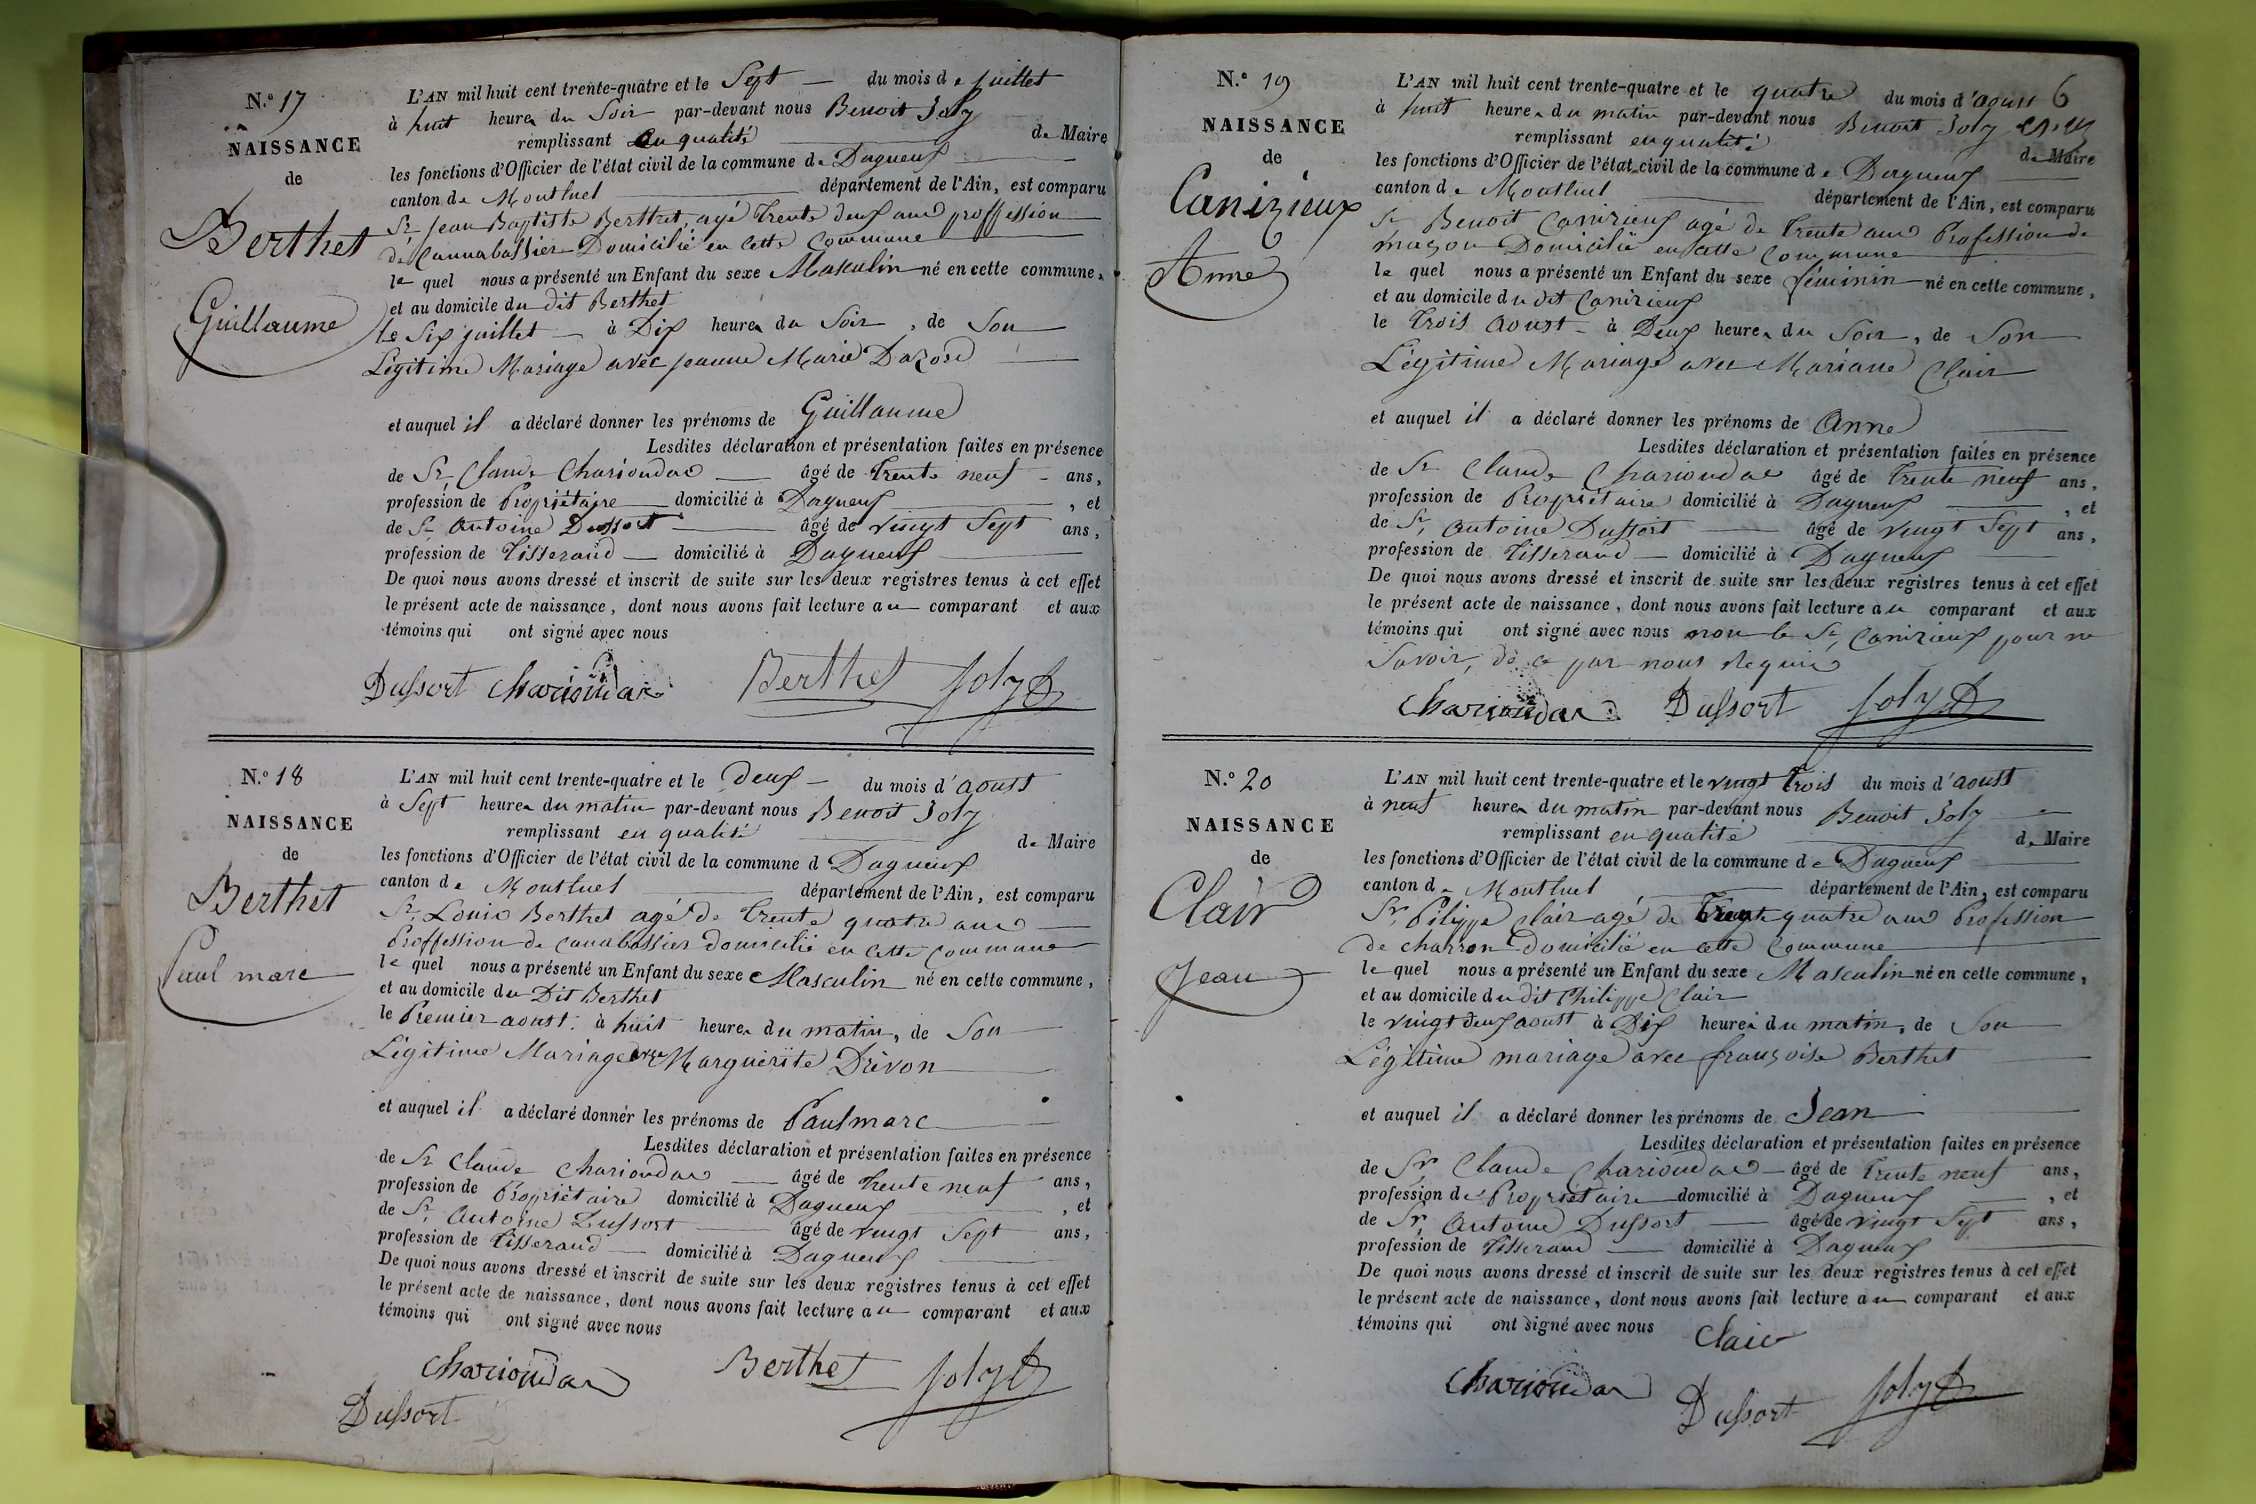 N.º 17
NAISSANCE
de
Berthet
Guillaume
L'AN mil huit cent trente-quatre et le Sept du mois de juillet
à huit heures du Soir par-devant nous Benoit Joly
remplissant en qualité de Maire
les fonctions d'Officier de l'état civil de la commune de Dagneux
canton de Montluel département de l'Ain, est comparu
Sr Jean Baptiste Berthet, agé trente deux ans proffession
de Cannabassier Domicilié en cette Commune
le quel nous a présenté un Enfant du sexe Masculin né en cette commune,
et au domicile du dit Berthet
le Six juillet à Dix heures du Soir, de Son
Légitime Mariage avec jeanne Marie
et auquel il a déclaré donner les prénoms de Guillaume
Lesdites déclaration et présentation faites en présence
de Sr Claude Charioudac âgé de trente neuf ans,
profession de Propriétaire domicilié à Dagneux, et
de Sr Antoine Dussort âgé de vingt Sept ans,
profession de Tisserand domicilié à Dagneux
De quoi nous avons dressé et inscrit de suite sur les deux registres tenus à cet effet
le présent acte de naissance, dont nous avons fait lecture au comparant et aux
témoins qui ont signé avec nous
Dussort Page Charioudac Berthet Joly
N.º 18
NAISSANCE
de
Berthet
Paul marc
L'AN mil huit cent trente-quatre et le deux du mois d'aoust
à Sept heures du matin par-devant nous Benoit Joly
remplissant en qualité de Maire
les fonctions d'Officier de l'état civil de la commune d Dagneux
canton de Montluel département de l'Ain, est comparu
Sr Louis Berthet agé de trente quatre ans
Proffession de Canabassier domicilié en cette Commune
le quel nous a présenté un Enfant du sexe Masculin né en cette commune,
et au domicile du Dit Berthet
le Premier aoust à huit heures du matin, de Son
Légitime Mariage avec Marguerite Drevon
et auquel il a déclaré donner les prénoms de Paul marc
Lesdites déclaration et présentation faites en présence
de Sr Claude Charioudac âgé de trente neuf ans,
profession de Propriétaire domicilié à Dagneux, et
de Sr Antoine Dussort âgé de vingt Sept ans,
profession de Tisserand domicilié à Dagneux
De quoi nous avons dressé et inscrit de suite sur les deux registres tenus à cet effet
le présent acte de naissance, dont nous avons fait lecture au comparant et aux
témoins qui ont signé avec nous
Charioudac Berthet Joly
Dussort
6
N.º 19
NAISSANCE
de
Canizieux
Anne
L'AN mil huit cent trente-quatre et le quatre du mois d'aoust
à huit heures du matin par-devant nous Benoit Joly
remplissant en qualité de Maire
les fonctions d'Officier de l'état civil de la commune de Dagneux
canton de Montluel département de l'Ain, est comparu
Sr Benoit Canizieux agé de trente ans Profession de
maçon Domicilié en cette Commune
le quel nous a présenté un Enfant du sexe féminin né en cette commune,
et au domicile du dit Canizieux
le trois aoust à Deux heures du Soir, de Son
Légitime Mariage avec Mariane Clair
et auquel il a déclaré donner les prénoms de Anne
Lesdites déclaration et présentation faites en présence
de Sr Claude Charioudac âgé de trente neuf ans,
profession de Propriétaire domicilié à Dagneux, et
de Sr Antoine Dussort âgé de vingt Sept ans,
profession de Tisserand domicilié à Dagneux
De quoi nous avons dressé et inscrit de suite sur les deux registres tenus à cet effet
le présent acte de naissance, dont nous avons fait lecture au comparant et aux
témoins qui ont signé avec nous non le Sr Canizieux pour ne
Savoir, de ce par nous Requis
Charioudac Dussort Joly
N.º 20
NAISSANCE
de
Clair
Jean
L'AN mil huit cent trente-quatre et le vingt trois du mois d'aoust
à neuf heures du matin par-devant nous Benoit Joly
remplissant en qualité de Maire
les fonctions d'Officier de l'état civil de la commune de Dagneux
canton de Montluel département de l'Ain, est comparu
Sr Pilippe Clair agé de quatre ans Profession
de charron Domicilié en cette Commune
le quel nous a présenté un Enfant du sexe Masculin né en cette commune,
et au domicile du dit Philippe Clair
le vingt deux aoust à Dix heures du matin, de Son
Légitime mariage avec françoise Berthet
et auquel il a déclaré donner les prénoms de Jean
Lesdites déclaration et présentation faites en présence
de Sr Claude Charioudac âgé de trente neuf ans,
profession de Propriétaire domicilié à Dagneux, et
de Sr Antoine Dussort âgé de vingt Sept ans,
profession de Tisserand domicilié à Dagneux
De quoi nous avons dressé et inscrit de suite sur les deux registres tenus à cet effet
le présent acte de naissance, dont nous avons fait lecture au comparant et aux
témoins qui ont signé avec nous Clair
Charioudac Dussort Joly